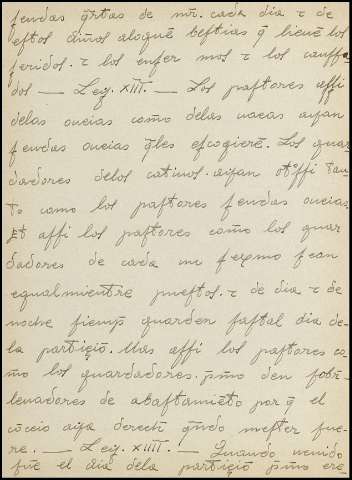 sendas qrtas de mr. cada dia τ de
estos diños aloquē bestias q̄ lieuē los
feridos. τ los enfermos τ los cansa-
dos — Ley. XIII. — Los pastores assi
delas oueias como delas uacas ayan
sendas oueias q̄les escogierē. Los guar
dadores delos catiuos. ayan otossi tan-
to como los pastores sendas oueias.
Et assi los pastores como los guar
dadores de cada un sexmo sean
egualmientre puestos. τ de dia τ de
noche siemp̄ guarden fastal dia de-
la partiçiō. Mas assi los pastores co-
mo los guardadores. pmō den sobre
leuadores de abastamiēto por q̄ el
cōceio aya derech qndo mester fue-
re. — Ley. XIIII. — Quando uenido
fue el dia dela partiçiō pmō ere